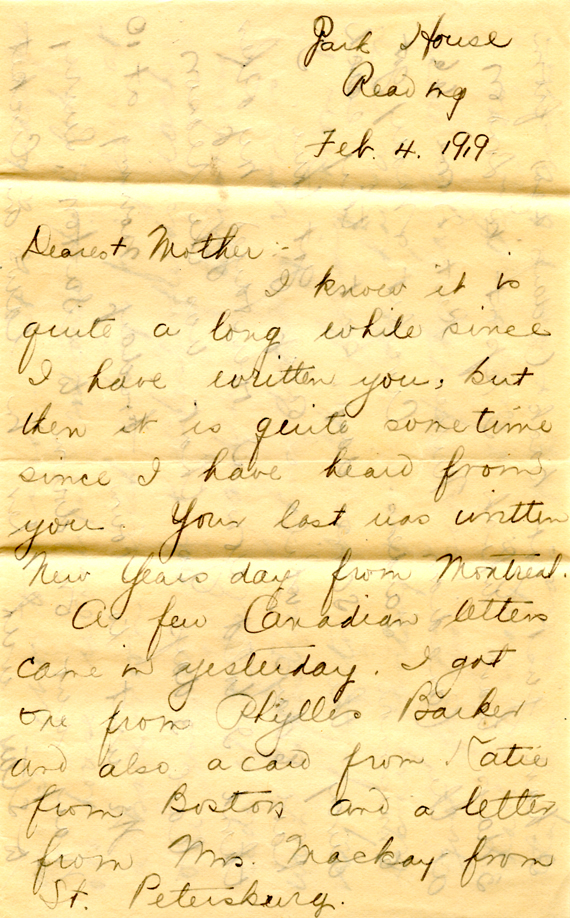 Park House
Reading
Feb. 4. 1919
Dearest Mother:-
I know it is
quite a long while since
I have written you, but
then it is quite sometime
since I have heard from
you. Your last was written
New Years day from Montreal.
A few Canadian letters
came in yesterday. I got
one from Phylles Barker
and also a card from Katie
from Boston and a letter
from Mrs. Mackay from
St. Petersburg.